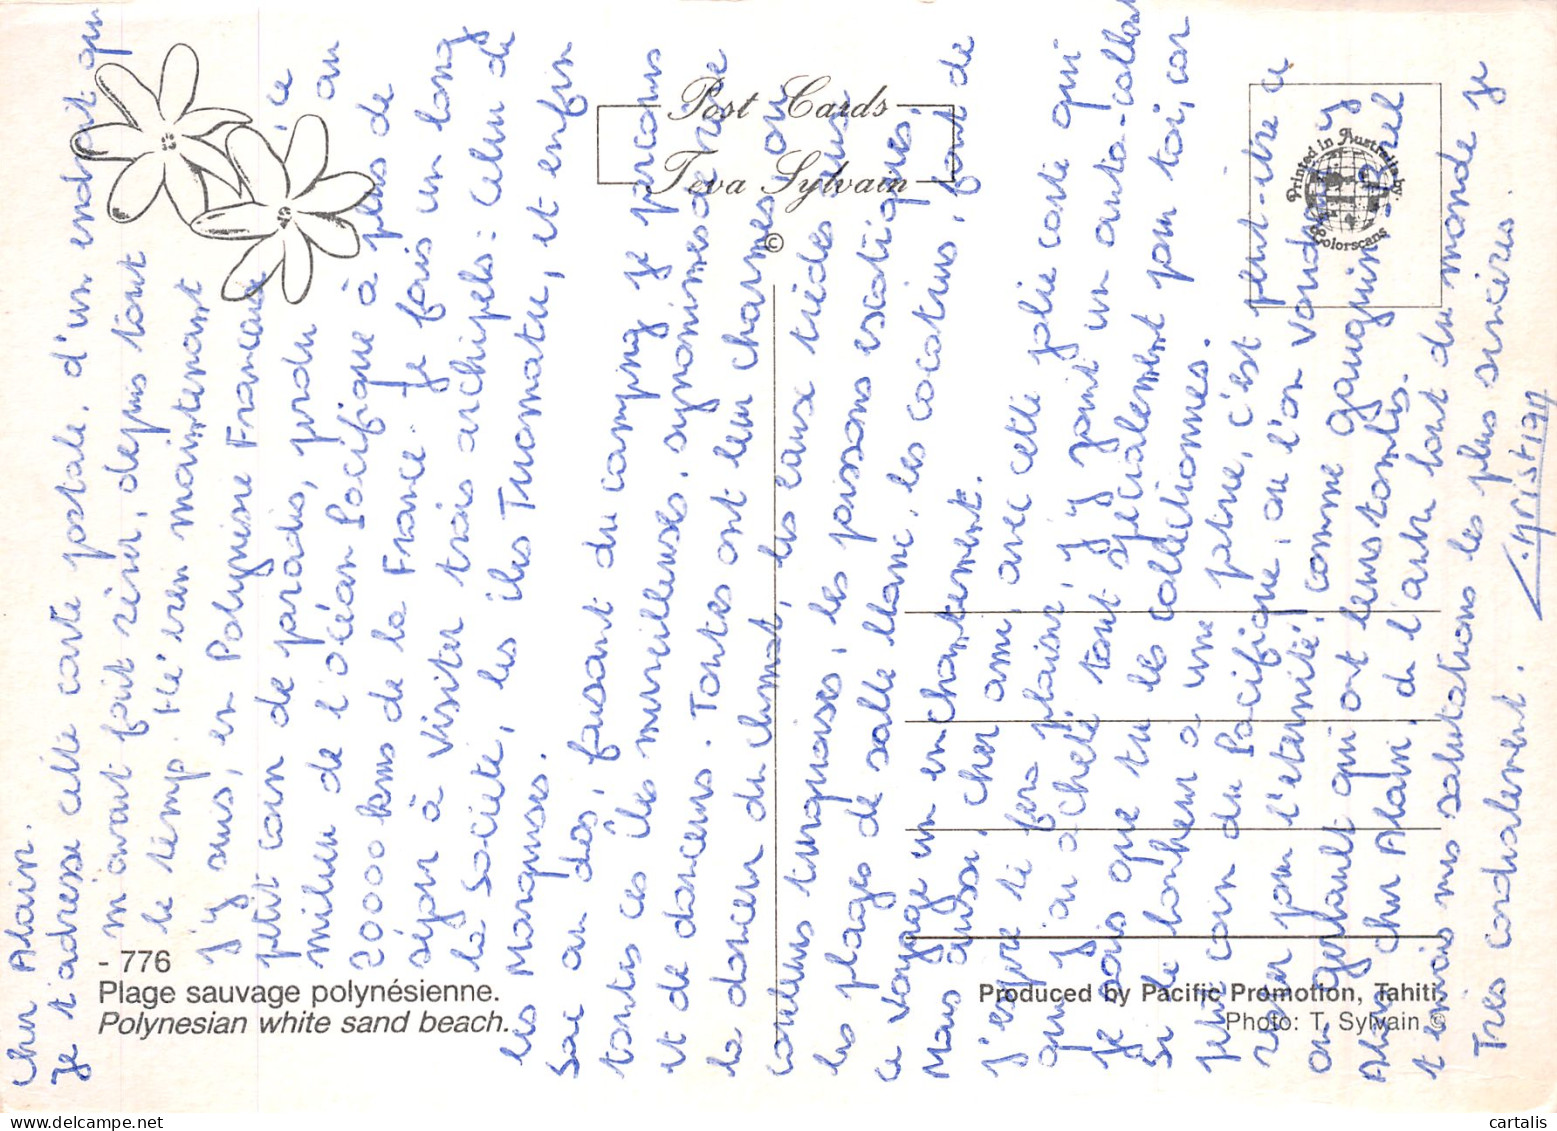 Cher Alain.
Je t'adresse cette carte postale, d'un endroit qui
m'avait fait rêver, depuis tout
le temp. Hé! ben maintenant
j'y suis, en Polynésie Francaise, ce
petit coin de paradis, perdu au
milieu de l'océan Pacifique à plus de
20000 kms de la France. Je fais un long
séjour à visiter trois archipels: celui de
la Société, les îles Tuamotu, et enfin
les Marquises.
Sac au dos, faisant du camping je parcours
toutes ces îles merveilleuses, synonimes de rêve
et de douceurs. Toutes ont leur charmes, ou
la douceur du climat, les eaux tiédes aux
couleurs turquoises, les poissons exotiques,
les plages de sable blanc, les cocotiers, font de
ce voyage un enchantement.
Mais aussi, cher ami, avec cette jolie carte qui
j'espère te fera plaisir, j'y joint un auto-collant
que j'ai acheté tout spécialement pour toi, car
je sais que tu les collectionnes.
Si le bonheur a une patrie, c'est peut-être ce
petit coin du Pacifique, ou l'on voudrai y
rester pour l'éternité, comme gauguin, Brel
ou Gerbault qui ont leurs tombs.
Alors cher Alain, de l'autre bout du monde je
t'envois mes salutations les plus sincères.
Très cordialement.
Christian
Post Cards
Teva Sylvain
©
Printed in Australia by:
Colorscans
- 776
Plage sauvage polynésienne.
Polynesian white sand beach.
Produced by Pacific Promotion, Tahiti.
Photo: T. Sylvain ©
cartalis